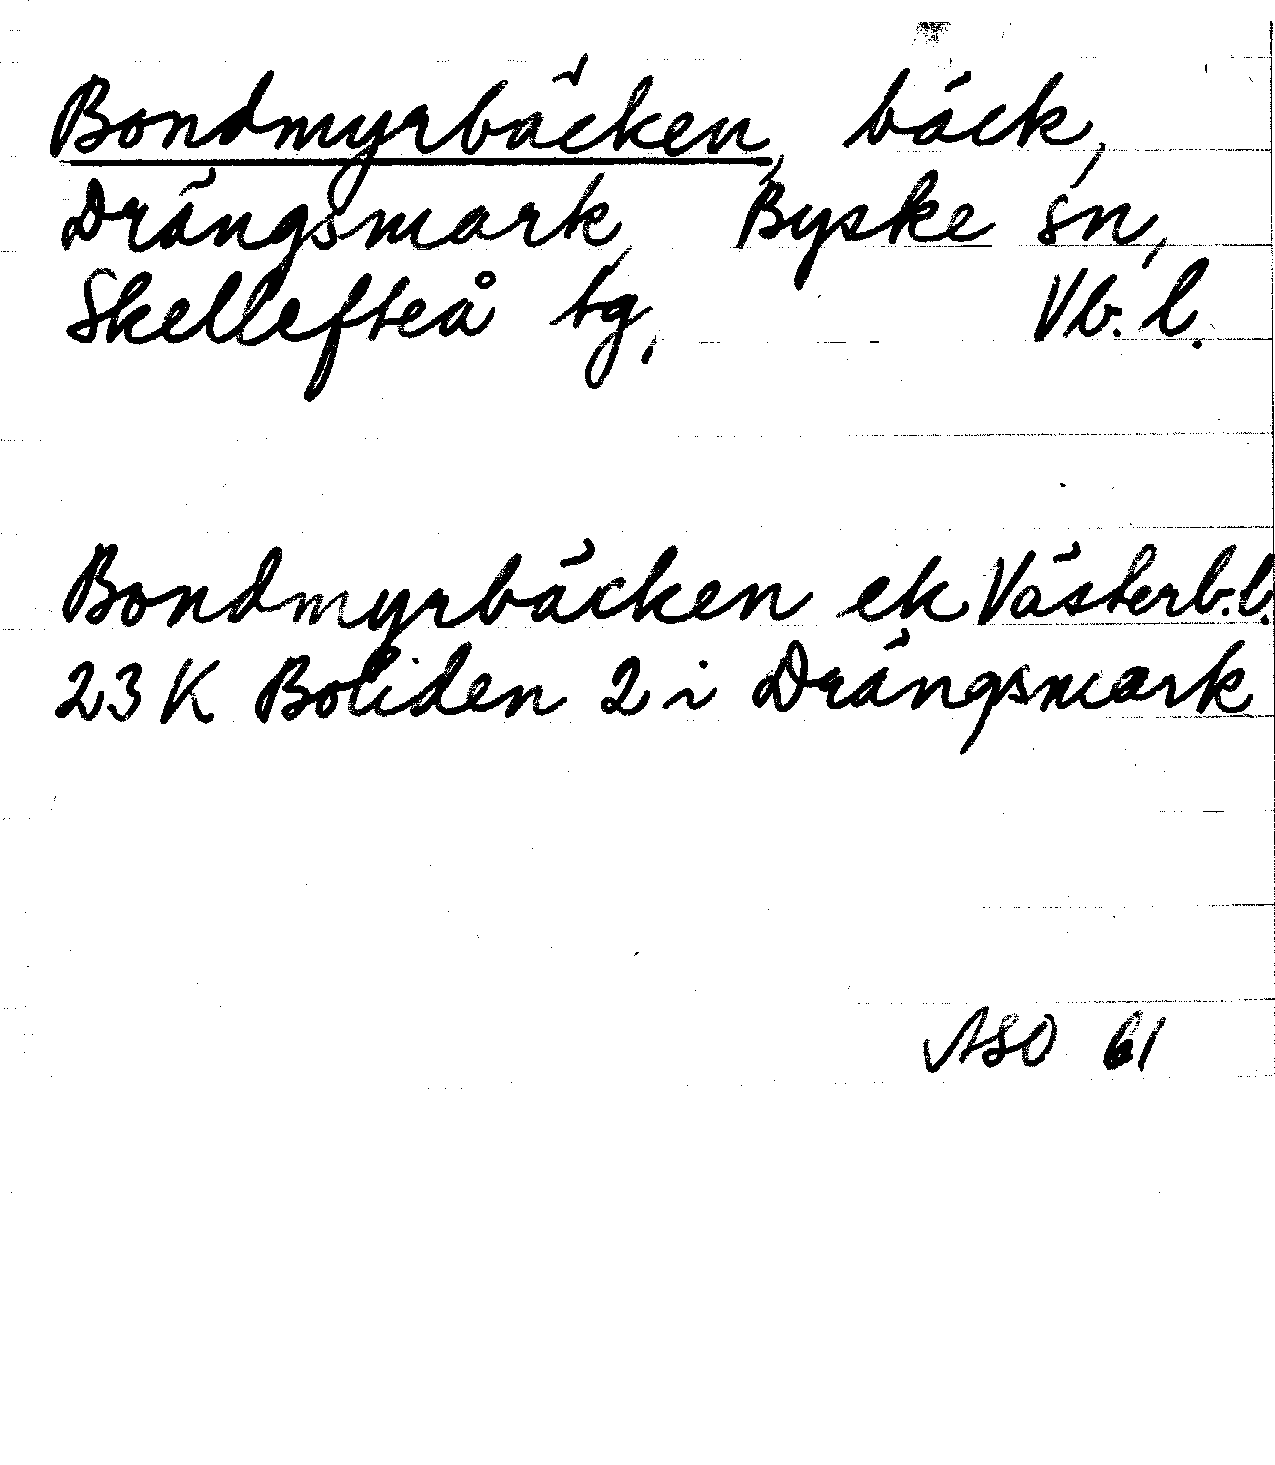 Bondmyrbäcken, bäck,
Drängsmark, Byske sn,
Skellefteå tg, Vb. l.
Bondmyrbäcken ek Västerb.l.
23 K Boliden 2 i Drängsmark
ASO 61